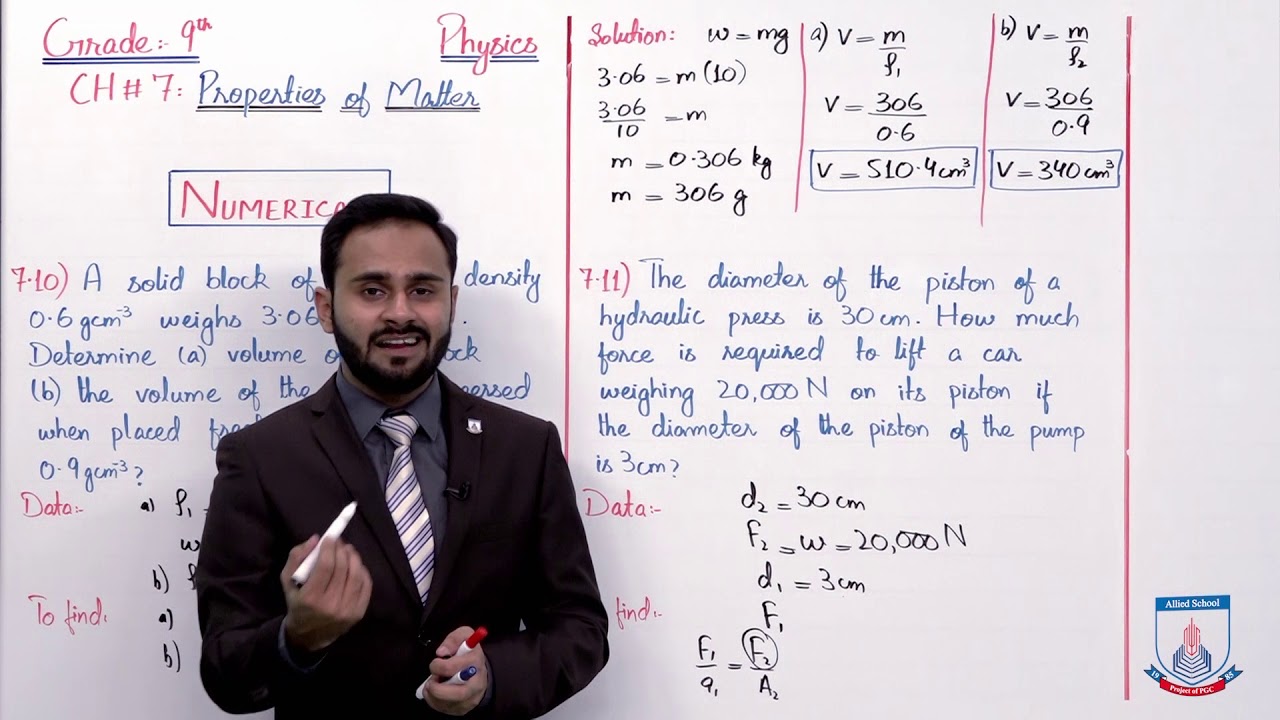 Grade:- 9th
Physics
CH # 7: Properties of Matter
NUMERICA
7.10) A solid block of density
0.6 gcm⁻³ weighs 3.06 .
Determine (a) volume
(b) the volume of the
when placed
0.9 gcm⁻³?
Data:- a) ρ₁
w
b)
To find: a)
b)
Solution: w = mg
3.06 = m(10)
3.06/10 = m
m = 0.306 kg
m = 306 g
a) V = m/ρ₁
V = 306/0.6
V = 510.4 cm³
b) V = m/ρ₂
V = 306/0.9
V = 340 cm³
7.11) The diameter of the piston of a
hydraulic press is 30 cm. How much
force is required to lift a car
weighing 20,000 N on its piston if
the diameter of the piston of the pump
is 3cm?
Data:- d₂ = 30 cm
F₂ = w = 20,000 N
d₁ = 3 cm
find:- F₁
F₁/a₁ = F₂/A₂
Allied School
19 85
Project of PGC